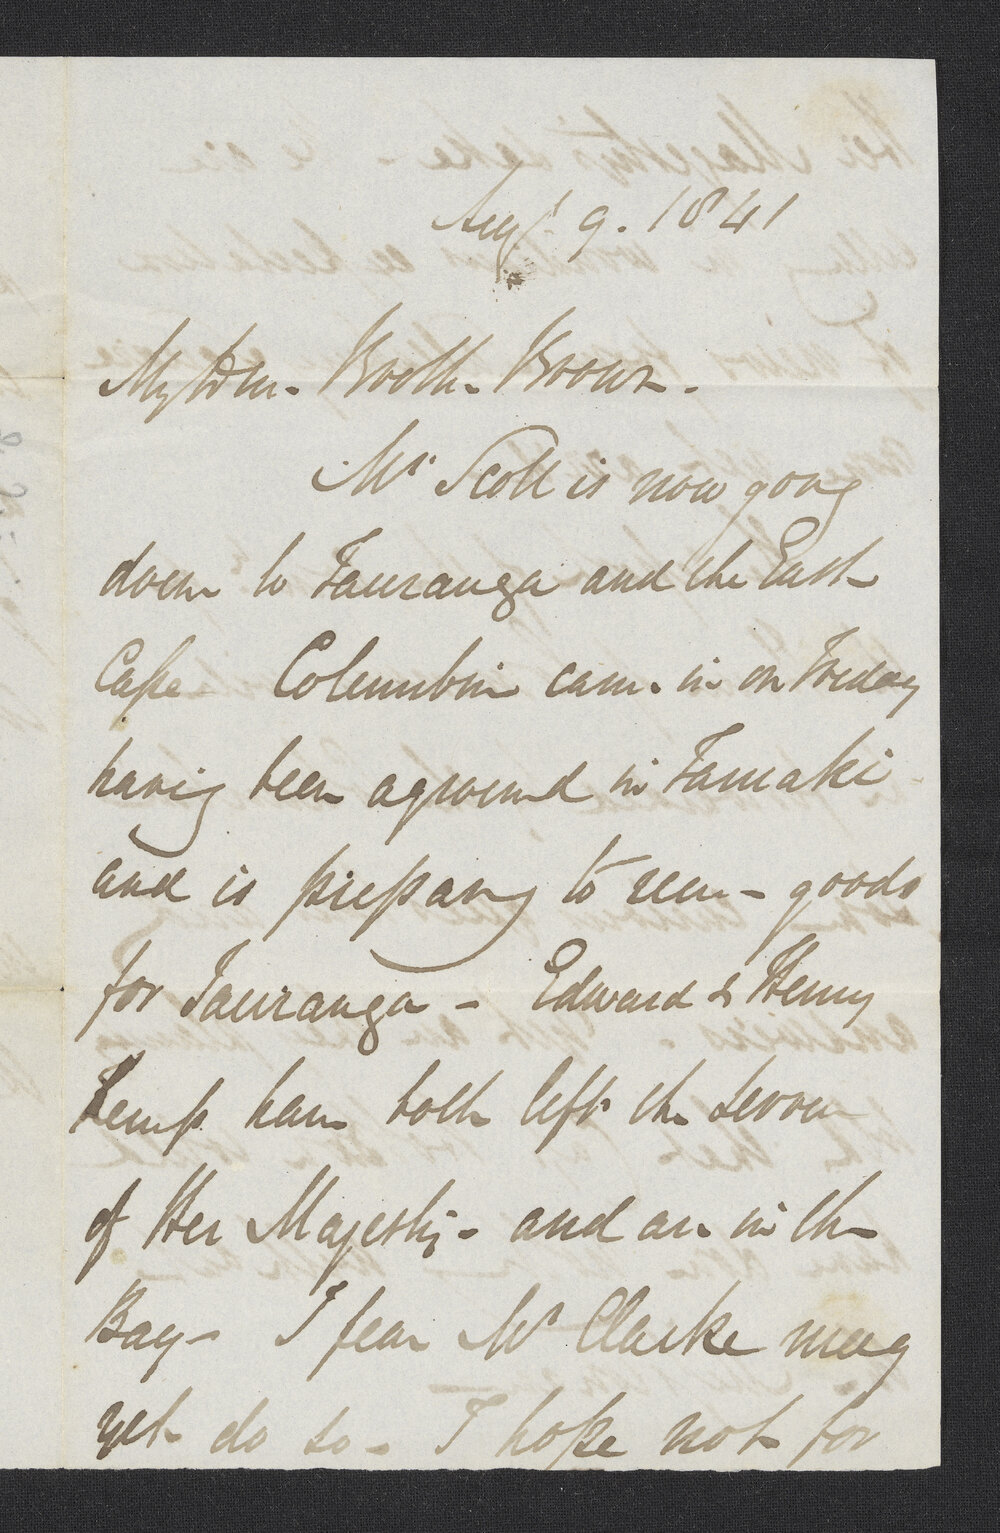 Augt 9. 1841
My Dr. Broth. Brown.
Mr Scott is now going
down to Tauranga and the East
Cape Columbine came in on Friday
having been aground in Tamaki
and is preparing to rece goods
for Tauranga - Edward & Henry
Kemp have both left the service
of Her Majesty - and are in the
Bay - I fear Mr Clarke may
yet do so - I hope not for